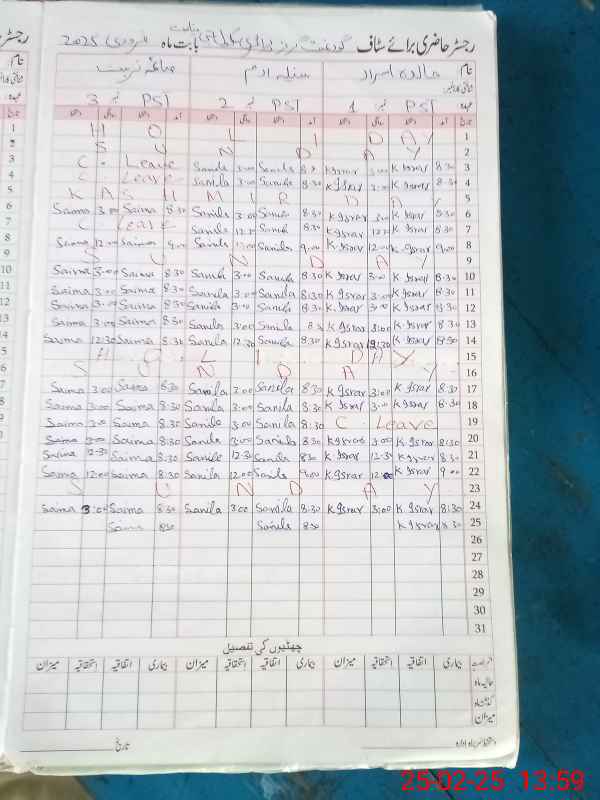 رجسٹر حاضری برائے سٹاف گورنمنٹ گرلز پرائمری بابت ماہ فروری 2025
نام خالدہ اسرار سنیلہ
عہدہ PST نمبر 1 PST نمبر 2 PST نمبر 3
تاریخ آمد دستخط آمد دستخط آمد دستخط
1 H O L I D A Y
2 S U N D A Y
3 8:30 K Israr 3:00 K Israr Sanila 3:00 Sanila C. Leave
4 8:30 K Israr 3:00 K Israr 8:30 Sanila 3:00 Sanila C Leave
5 K A S H M I R D A Y
6 8:30 K Israr 3:00 K Israr 8:30 Sanila 3:00 Sanila 8:30 Saima 3:00 Saima
7 8:30 K Israr K Israr 8:30 Sanila 12:30 Sanila C. Leave
8 9:00 K Israr 12:00 K Israr 9:00 Sanila 12:00 Sanila 9:00 Saima 12:00 Saima
9 S U N D A Y
10 8:30 K Israr 3:00 K Israr 8:30 Sanila 3:00 Sanila 8:30 Saima 3:00 Saima
11 8:30 K Israr 3:00 K Israr 8:30 Sanila 3:00 Sanila 8:30 Saima 3:00 Saima
12 8:30 K Israr 3:00 K Israr 8:30 Sanila 3:00 Sanila 8:30 Saima 3:00 Saima
13 8:30 K Israr 3:00 K Israr Sanila 3:00 Sanila 8:30 Saima 3:00 Saima
14 8:30 K Israr K Israr 8:30 Sanila 12:30 Sanila 8:30 Saima 12:30 Saima
15 H O L I D A Y
16 S U N D A Y
17 8:30 K Israr 3:00 K Israr 8:30 Sanila 3:00 Sanila 8:30 Saima 3:00 Saima
18 8:30 K Israr 3:00 K Israr 8:30 Sanila 3:00 Sanila 8:30 Saima 3:00 Saima
19 C. Leave 8:30 Sanila 3:00 Sanila 8:30 Saima 3:00 Saima
20 8:30 K Israr 3:00 K Israr 8:30 Sanila 3:00 Sanila 8:30 Saima 3:00 Saima
21 8:30 K Israr 12:30 K Israr 8:30 Sanila 12:30 Sanila 8:30 Saima 12:30 Saima
22 9:00 K Israr 12:00 K Israr 9:00 Sanila 12:00 Sanila 8:30 Saima 12:00 Saima
23 S U N D A Y
24 8:30 K Israr 3:00 K Israr 8:30 Sanila 3:00 Sanila 8:30 Saima 3:00 Saima
25 8:30 K Israr 8:30 Sanila 8:30 Saima
26
27
28
29
30
31
چھٹیوں کی تفصیل
بیماری اتفاقیہ استحقاقیہ میزان بیماری اتفاقیہ استحقاقیہ میزان بیماری اتفاقیہ استحقاقیہ میزان
حالیہ ماہ
گذشتہ ماہ
میزان
دستخط سربراہ ادارہ تاریخ
25-02-25 13:59